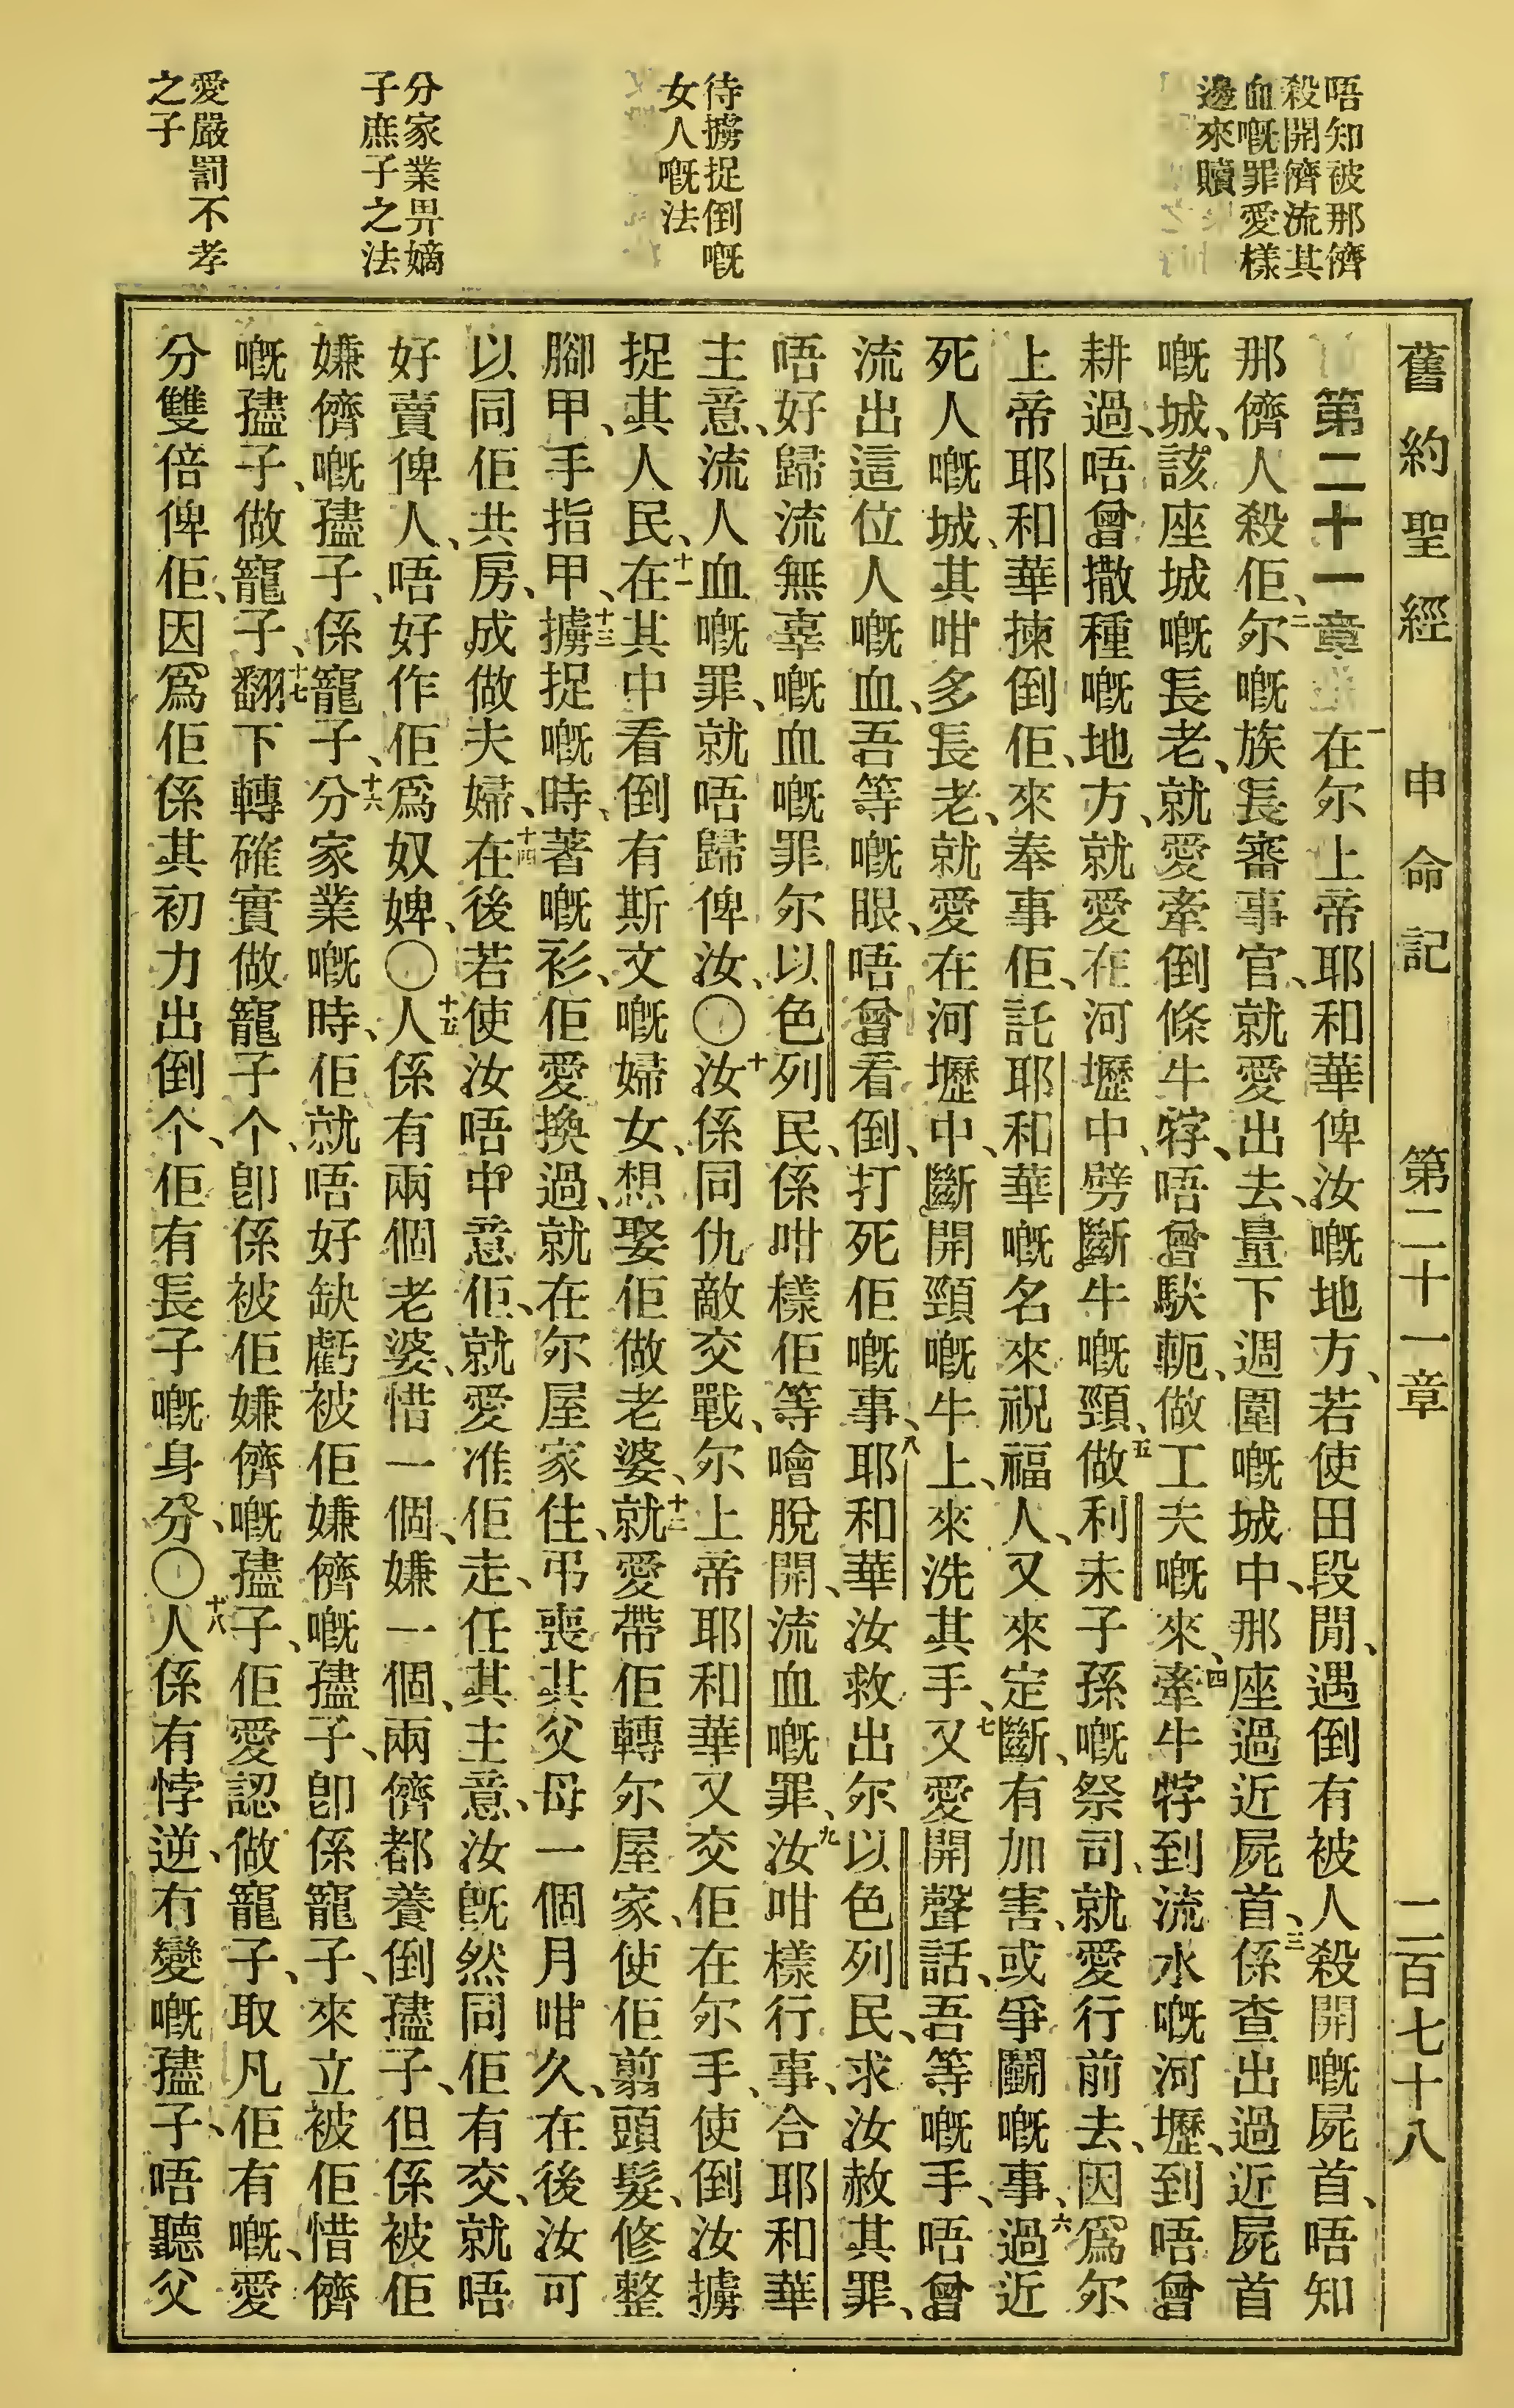 唔知被那儕
殺開儕流其
血嘅罪愛樣
邊來贖
待擄捉倒嘅
女人嘅法
分家業畀嫡
子庶子之法
愛嚴罰不孝
之子
舊約聖經 申命記 第二十一章 二百七十八
第二十一章 一在尔上帝耶和華俾汝嘅地方、若使田段閒、遇倒有被人殺開嘅屍首、唔知
那儕人殺佢、二尔嘅族長審事官、就愛出去、量下週圍嘅城中、那座過近屍首、三係查出過近屍首
嘅城、該座城嘅長老、就愛牽倒條牛牸、唔曾馱軛、做工夫嘅來、四牽牛牸到流水嘅河壢、到唔曾
耕過、唔曾撒種嘅地方、就愛在河壢中、劈斷牛嘅頸、五做利未子孫嘅祭司、就愛行前去、因爲尔
上帝耶和華揀倒佢、來奉事佢、託耶和華嘅名來祝福人、又來定斷、有加害、或爭鬭嘅事、六過近
死人嘅城、其咁多長老、就愛在河壢中、斷開頸嘅牛上、來洗其手、七又愛開聲話、吾等嘅手、唔曾
流出這位人嘅血、吾等嘅眼、唔曾看倒、打死佢嘅事、八耶和華、汝救出尔以色列民、求汝赦其罪、
唔好歸流無辜嘅血嘅罪尔以色列民、係咁樣佢等噲脫開、流血嘅罪、九汝咁樣行事、合耶和華
主意、流人血嘅罪、就唔歸俾汝、○十汝係同仇敵交戰、尔上帝耶和華又交佢在尔手、使倒汝擄
捉其人民、十一在其中看倒有斯文嘅婦女、想娶佢做老婆、十二就愛帶佢轉尔屋家、使佢翦頭髮、修整
腳甲、手指甲、十三擄捉嘅時、著嘅衫、佢愛換過、就在尔屋家住、弔喪其父母一個月咁久、在後汝可
以同佢共房、成做夫婦、十四在後若使汝唔中意佢、就愛准佢走、任其主意、汝旣然同佢有交、就唔
好賣俾人、唔好作佢爲奴婢、○十五人係有兩個老婆、惜一個、嫌一個、兩儕都養倒孻子、但係被佢
嫌儕嘅孻子、係寵子、十六分家業嘅時、佢就唔好缺虧被佢嫌儕嘅孻子、卽係寵子、來立被佢惜儕
嘅孻子、做寵子、十七翻下轉確實做寵子个、卽係被佢嫌儕嘅孻子、佢愛認做寵子、取凡佢有嘅、愛
分雙倍俾佢、因爲佢係其初力出倒个、佢有長子嘅身分、○十八人係有悖逆、冇變嘅孻子、唔聽父